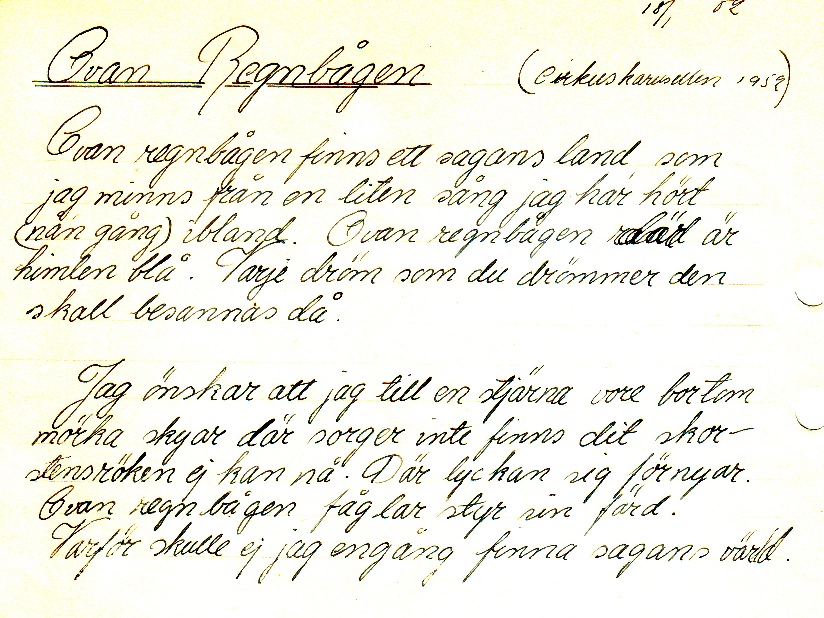 18/1 62
Ovan Regnbågen (Cirkuskarusellen 1959)
Ovan regnbågen finns ett sagans land, som
jag minns från en liten sång jag har hört
(nån gång) ibland. Ovan regnbågen där är
himlen blå. Varje dröm som du drömmer den
skall besannas då.
Jag önskar att jag till en stjärna vore bortom
mörka skyar där sorger inte finns dit skor-
stensröken ej kan nå. Där lyckan sig förnyar.
Ovan regnbågen fåglar styr sin färd.
Varför skulle ej jag engång finna sagans värld.